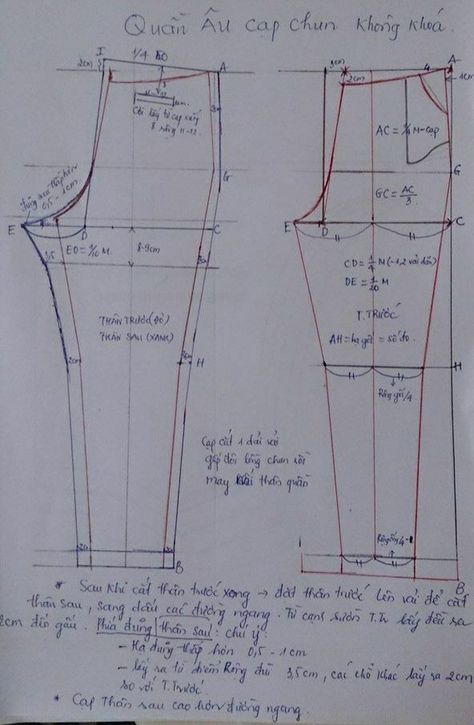 Quần Âu cạp chun không khoá.
I 1/4 A
2cm
Cơi túy từ cạp xuống
8 rộng 11-12
đũng sau thấp hơn
0,5 - 1cm
G
E D C
ED = M 8-9cm
3,5
THÂN TRƯỚC (ĐỎ)
THÂN SAU (XANH)
2cm H
B
3cm 4 A
2cm 1cm
AC = 1/4 M - cạp
G
GC = AC/3
E D C
CD = 1/4 M (-1,2 vải dãn)
DE = 1/20 M
T. TRƯỚC
AH = hạ gối = số đo.
H
Rộng gối/4
Cạp cắt 1 dải vải
gấp đôi lồng chun rồi
may thân quần
Rộng ống/4 - 1
B
* Sau khi cắt thân trước xong → đặt thân trước lên vải để cắt
thân sau, sang dấu các đường ngang. Từ cạnh sườn T.Tr lấy đều ra
2cm đến gấu. Phía đũng thân sau: chú ý:
- Hạ đũng thấp hơn 0,5 - 1cm
- lấy ra từ điểm Rộng đùi 3,5cm, các chỗ khác lấy ra 2cm
so với T.Trước
* Cạp Thân sau cao hơn đường ngang.